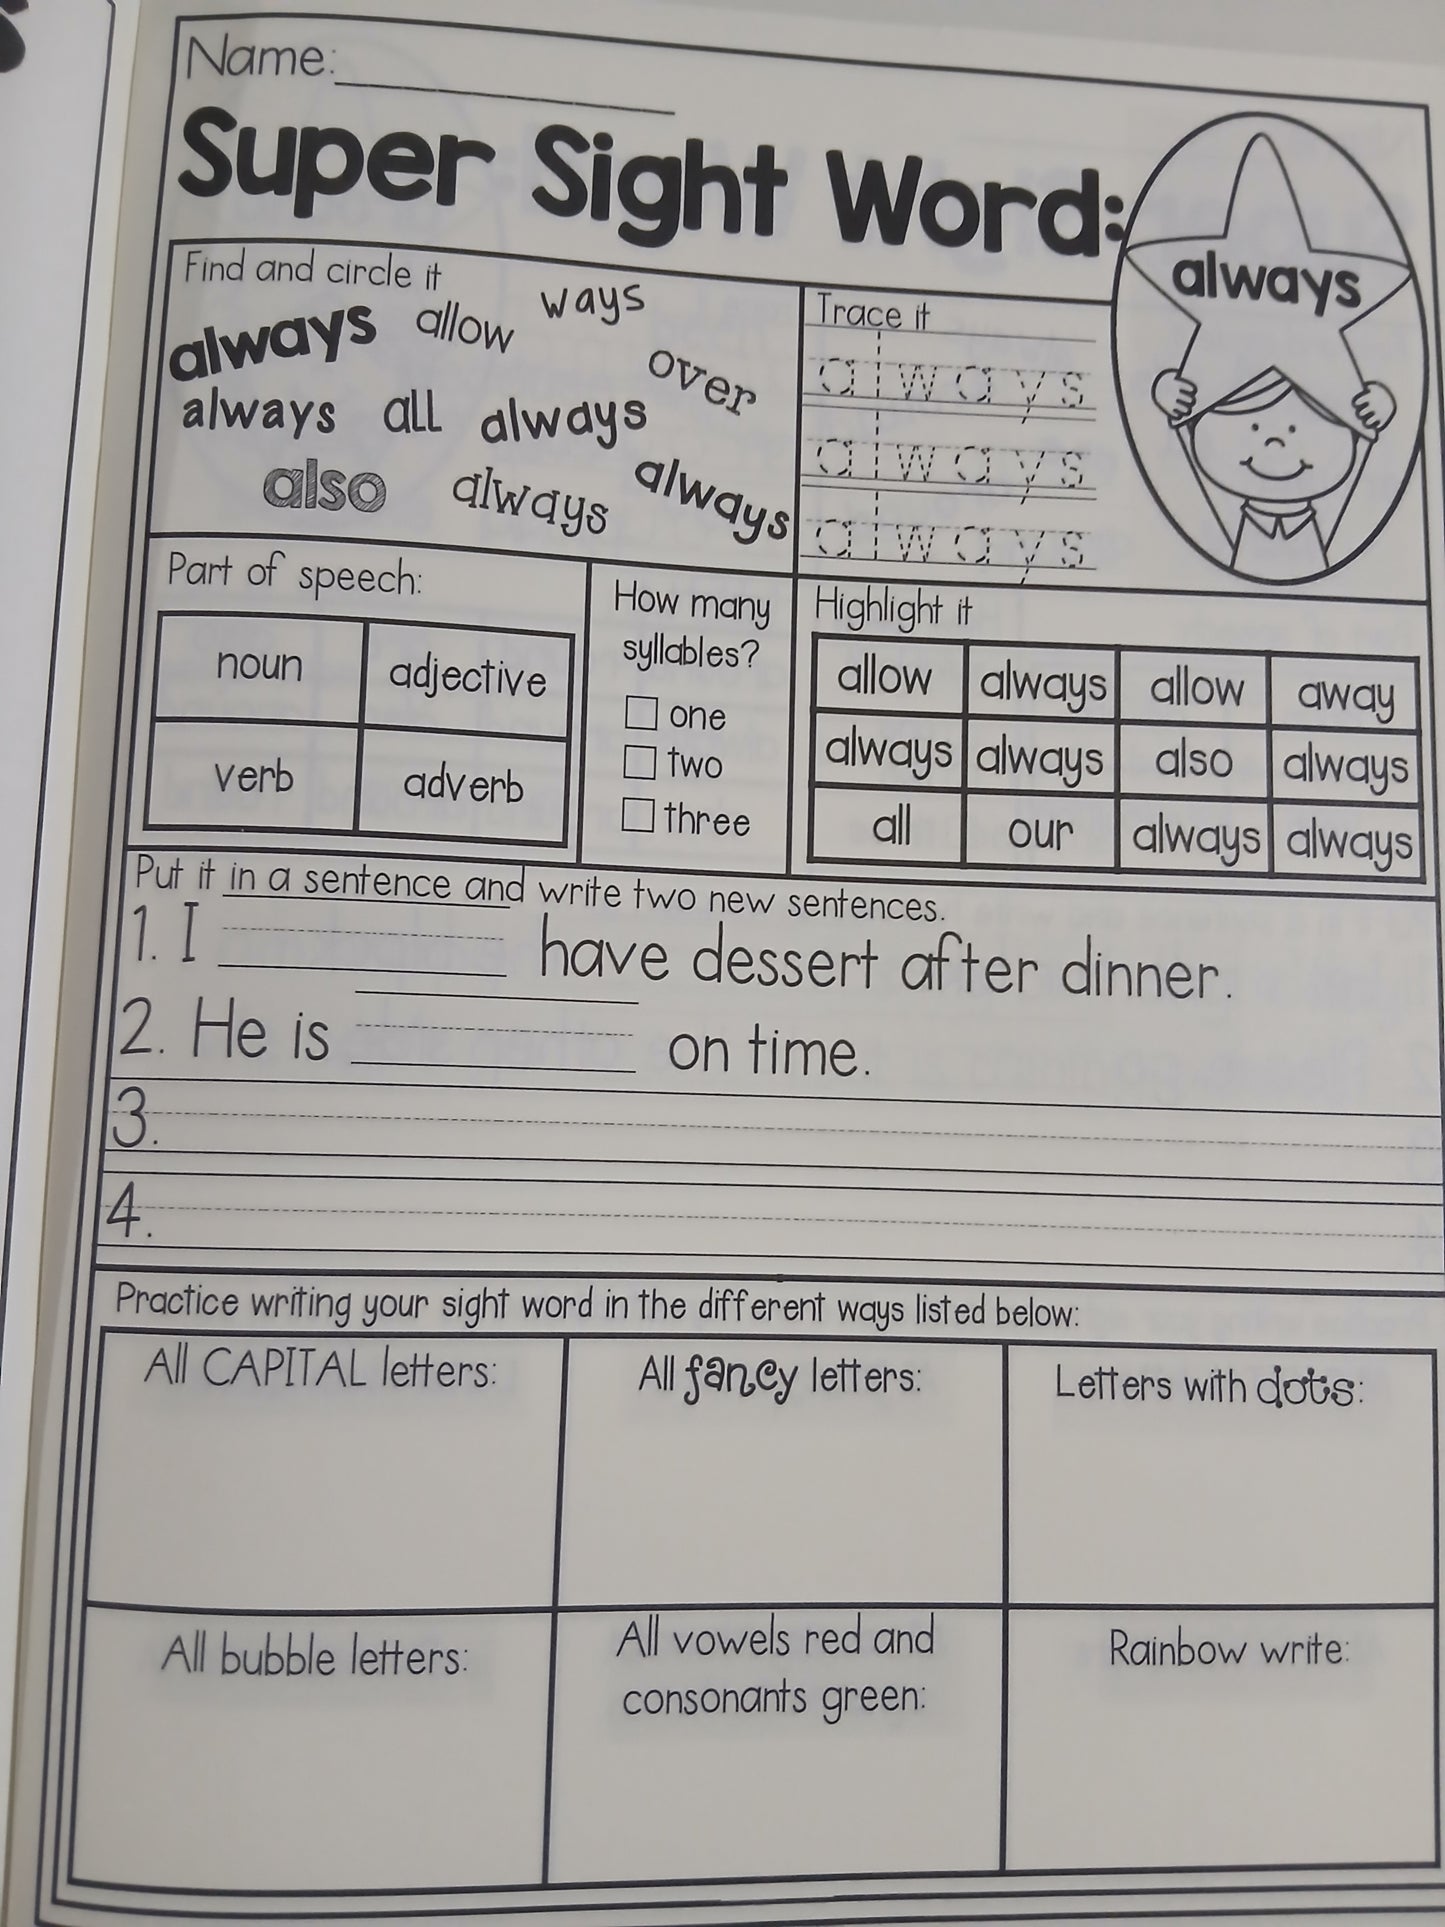 Name:
Super Sight Word:
always
Find and circle it
always allow ways
over
always all always
also always always
Trace it
always
always
always
Part of speech:
noun adjective
verb adverb
How many
syllables?
one
two
three
Highlight it
allow always allow away
always always also always
all our always always
Put it in a sentence and write two new sentences.
1. I have dessert after dinner.
2. He is on time.
3.
4.
Practice writing your sight word in the different ways listed below:
All CAPITAL letters: All fancy letters: Letters with dots:
All bubble letters: All vowels red and
consonants green: Rainbow write: